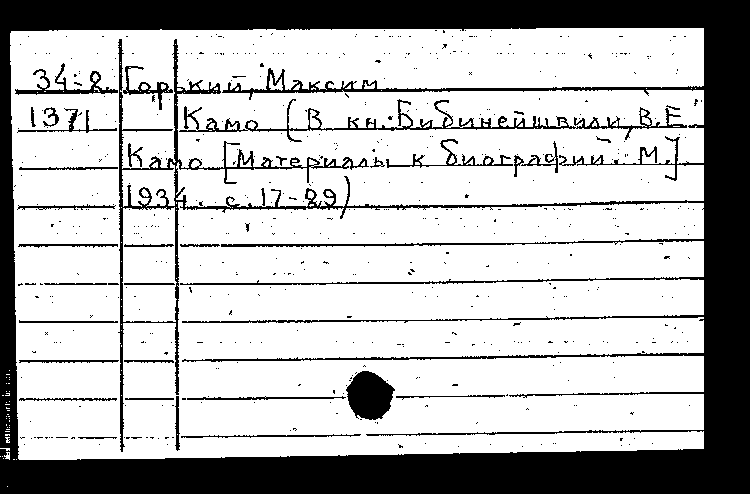 34-2. Горький, Максим
1371 Камо (В кн.: Бибинейшвили, В.Е.
Камо [Материалы к биографии. М.].
1934. с. 17-29).